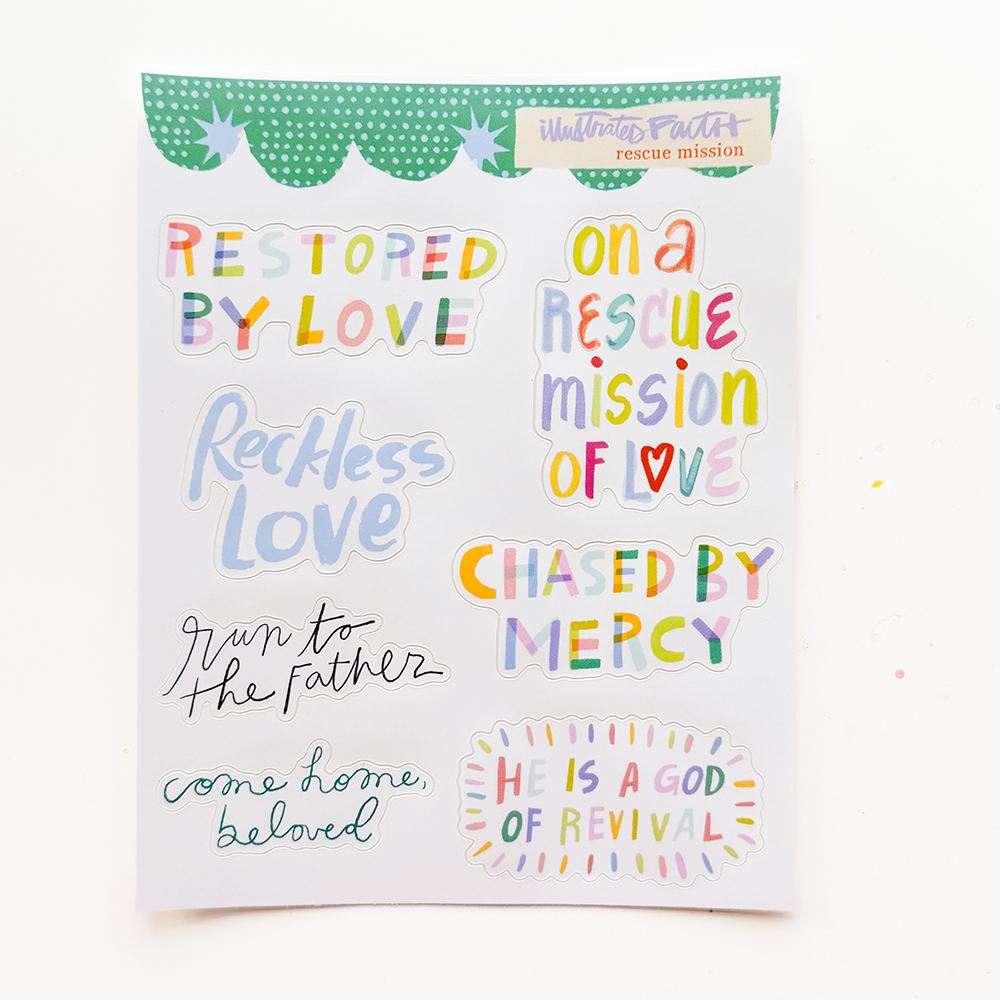 illustrated Faith
rescue mission
RESTORED
BY LOVE
on a
RESCUE
mission
OF LOVE
Reckless
Love
CHASED BY
MERCY
run to
the Father
come home,
beloved
HE IS A GOD
OF REVIVAL